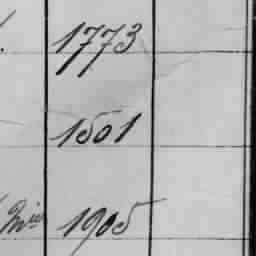 1773
1501
1905